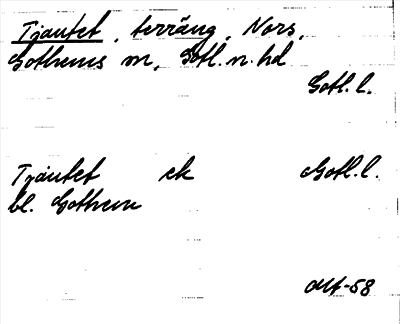 Tjautet, terräng, Nors,
Gothems sn, Gotl. n. hd
Gotl. l.
Tjautet ek Gotl. l.
bl. Gothem
-58